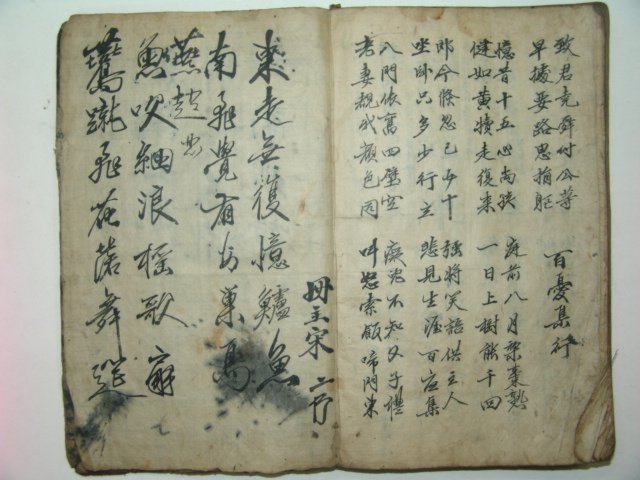 致君堯舜付公等
早據要路思捐軀
百憂集行
憶昔十五心尚孩
健如黃犢走復來
庭前八月梨棗熟
一日上樹能千回
即今倏忽已五十
坐臥只多少行立
強將笑語供主人
悲見生涯百憂集
入門依舊四壁空
老妻覩我顏色同
癡兒不知父子禮
叫怒索飯啼門東
冊主宋
東走無復憶鱸魚
南飛覺有安巢鳥
燕
魚吹細浪搖歌扇
鷰蹴飛花落舞筵